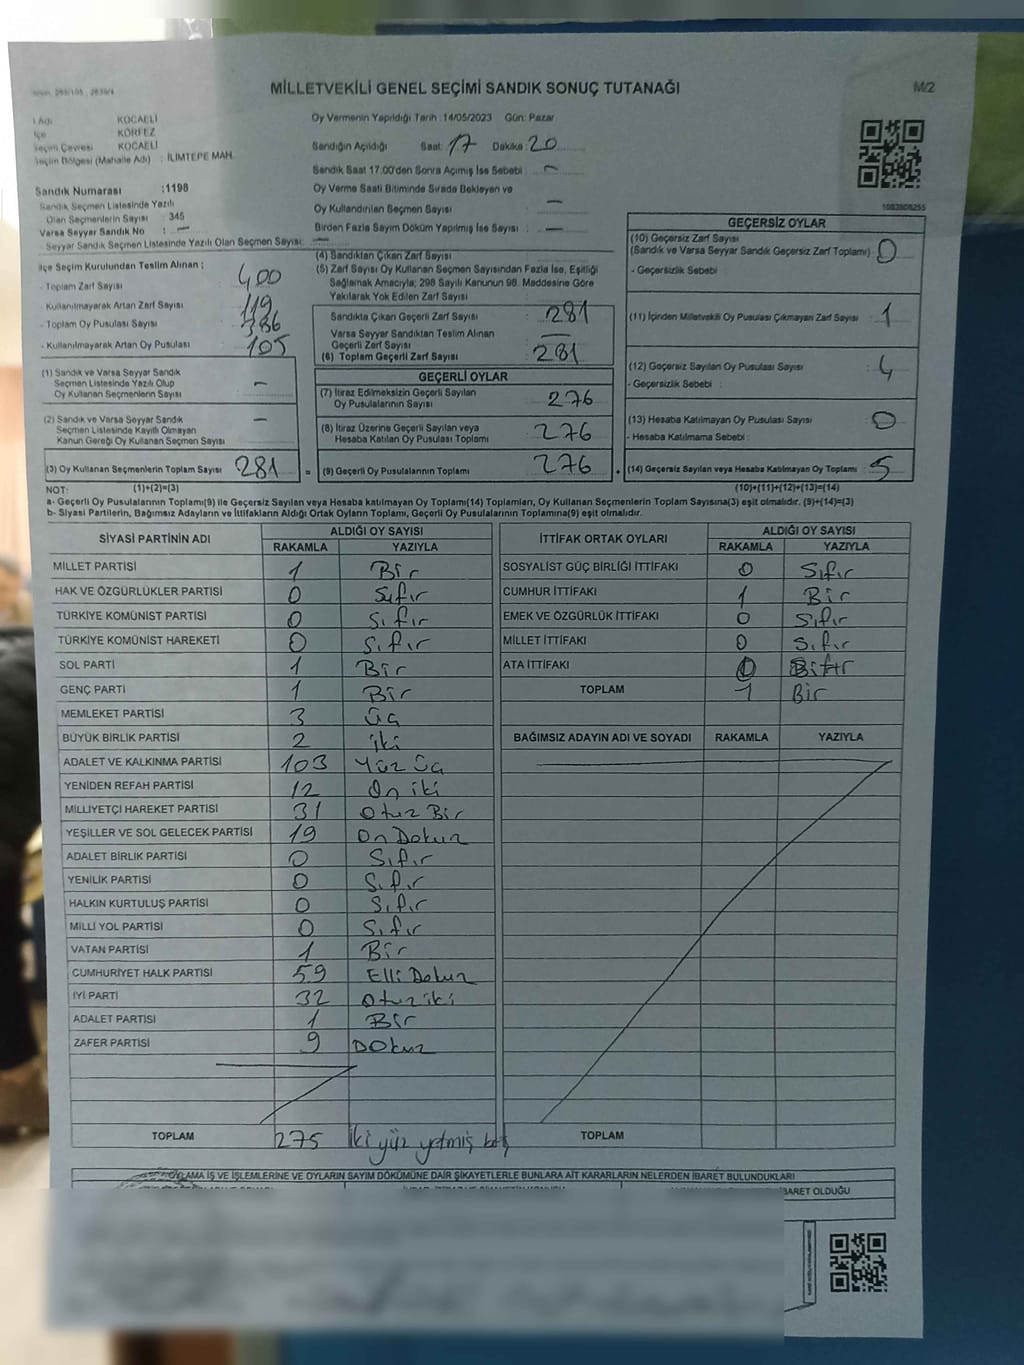 MİLLETVEKİLİ GENEL SEÇİMİ SANDIK SONUÇ TUTANAĞI
M/2
İl Adı KOCAELİ
İlçe KÖRFEZ
Seçim Çevresi KOCAELİ
Seçim Bölgesi (Mahalle Adı) : İLİMTEPE MAH.
Sandık Numarası :1198
Sandık Seçmen Listesinde Yazılı
Olan Seçmenlerin Sayısı : 345
Varsa Seyyar Sandık No : —
- Seyyar Sandık Seçmen Listesinde Yazılı Olan Seçmen Sayısı: —
Oy Vermenin Yapıldığı Tarih :14/05/2023 Gün: Pazar
Sandığın Açıldığı Saat: 17 Dakika: 20
Sandık Saat 17.00'den Sonra Açımış İse Sebebi : —
Oy Verme Saati Bitiminde Sırada Bekleyen ve
Oy Kullandırılan Seçmen Sayısı —
Birden Fazla Sayım Döküm Yapılmış İse Sayısı : —
1083808255
İlçe Seçim Kurulundan Teslim Alınan ;
- Toplam Zarf Sayısı 400
- Kullanılmayarak Artan Zarf Sayısı 119
- Toplam Oy Pusulası Sayısı 386
- Kullanılmayarak Artan Oy Pusulası 105
(1) Sandık ve Varsa Seyyar Sandık
Seçmen Listesinde Yazılı Olup
Oy Kullanan Seçmenlerin Sayısı : —
(2) Sandık ve Varsa Seyyar Sandık
Seçmen Listesinde Kayıtlı Olmayan
Kanun Gereği Oy Kullanan Seçmen Sayısı —
(3) Oy Kullanan Seçmenlerin Toplam Sayısı 281
(4) Sandıktan Çıkan Zarf Sayısı
(5) Zarf Sayısı Oy Kullanan Seçmen Sayısından Fazla İse, Eşitliği
Sağlamak Amacıyla; 298 Sayılı Kanunun 98. Maddesine Göre
Yakılarak Yok Edilen Zarf Sayısı
Sandıkta Çıkan Geçerli Zarf Sayısı : 281
Varsa Seyyar Sandıktan Teslim Alınan
Geçerli Zarf Sayısı —
(6) Toplam Geçerli Zarf Sayısı 281
GEÇERLİ OYLAR
(7) İtiraz Edilmeksizin Geçerli Sayılan
Oy Pusulalarının Sayısı 276
(8) İtiraz Üzerine Geçerli Sayılan veya
Hesaba Katılan Oy Pusulası Toplamı 276
= (9) Geçerli Oy Pusulalarının Toplamı 276
GEÇERSİZ OYLAR
(10) Geçersiz Zarf Sayısı
(Sandık ve Varsa Seyyar Sandık Geçersiz Zarf Toplamı) 0
- Geçersizlik Sebebi :
(11) İçinden Milletvekili Oy Pusulası Çıkmayan Zarf Sayısı : 1
(12) Geçersiz Sayılan Oy Pusulası Sayısı : 4
- Geçersizlik Sebebi :
(13) Hesaba Katılmayan Oy Pusulası Sayısı 0
- Hesaba Katılmama Sebebi :
(14) Geçersiz Sayılan veya Hesaba Katılmayan Oy Toplamı : 5
NOT: (1)+(2)=(3) (10)+(11)+(12)+(13)=(14)
a- Geçerli Oy Pusulalarının Toplamı(9) ile Geçersiz Sayılan veya Hesaba katılmayan Oy Toplamı(14) Toplamları, Oy Kullanan Seçmenlerin Toplam Sayısına(3) eşit olmalıdır. (9)+(14)=(3)
b- Siyasi Partilerin, Bağımsız Adayların ve İttifakların Aldığı Ortak Oyların Toplamı, Geçerli Oy Pusulalarının Toplamına(9) eşit olmalıdır.
SİYASİ PARTİNİN ADI ALDIĞI OY SAYISI
RAKAMLA YAZIYLA
MİLLET PARTİSİ 1 Bir
HAK VE ÖZGÜRLÜKLER PARTİSİ 0 Sıfır
TÜRKİYE KOMÜNİST PARTİSİ 0 Sıfır
TÜRKİYE KOMÜNİST HAREKETİ 0 Sıfır
SOL PARTİ 1 Bir
GENÇ PARTİ 1 Bir
MEMLEKET PARTİSİ 3 Üç
BÜYÜK BİRLİK PARTİSİ 2 iki
ADALET VE KALKINMA PARTİSİ 103 Yüz Üç
YENİDEN REFAH PARTİSİ 12 On iki
MİLLİYETÇİ HAREKET PARTİSİ 31 Otuz Bir
YEŞİLLER VE SOL GELECEK PARTİSİ 19 On Dokuz
ADALET BİRLİK PARTİSİ 0 Sıfır
YENİLİK PARTİSİ 0 Sıfır
HALKIN KURTULUŞ PARTİSİ 0 Sıfır
MİLLİ YOL PARTİSİ 0 Sıfır
VATAN PARTİSİ 1 Bir
CUMHURİYET HALK PARTİSİ 59 Elli Dokuz
İYİ PARTİ 32 Otuz iki
ADALET PARTİSİ 1 Bir
ZAFER PARTİSİ 9 Dokuz
TOPLAM 275 İki yüz yetmiş beş
İTTİFAK ORTAK OYLARI ALDIĞI OY SAYISI
RAKAMLA YAZIYLA
SOSYALİST GÜÇ BİRLİĞİ İTTİFAKI 0 Sıfır
CUMHUR İTTİFAKI 1 Bir
EMEK VE ÖZGÜRLÜK İTTİFAKI 0 Sıfır
MİLLET İTTİFAKI 0 Sıfır
ATA İTTİFAKI 0
TOPLAM 1 Bir
BAĞIMSIZ ADAYIN ADI VE SOYADI RAKAMLA YAZIYLA
TOPLAM
OYLAMA İŞ VE İŞLEMLERİNE VE OYLARIN SAYIM DÖKÜMÜNE DAİR ŞİKAYETLERLE BUNLARA AİT KARARLARIN NELERDEN İBARET BULUNDUKLARI
İBARET OLDUĞU